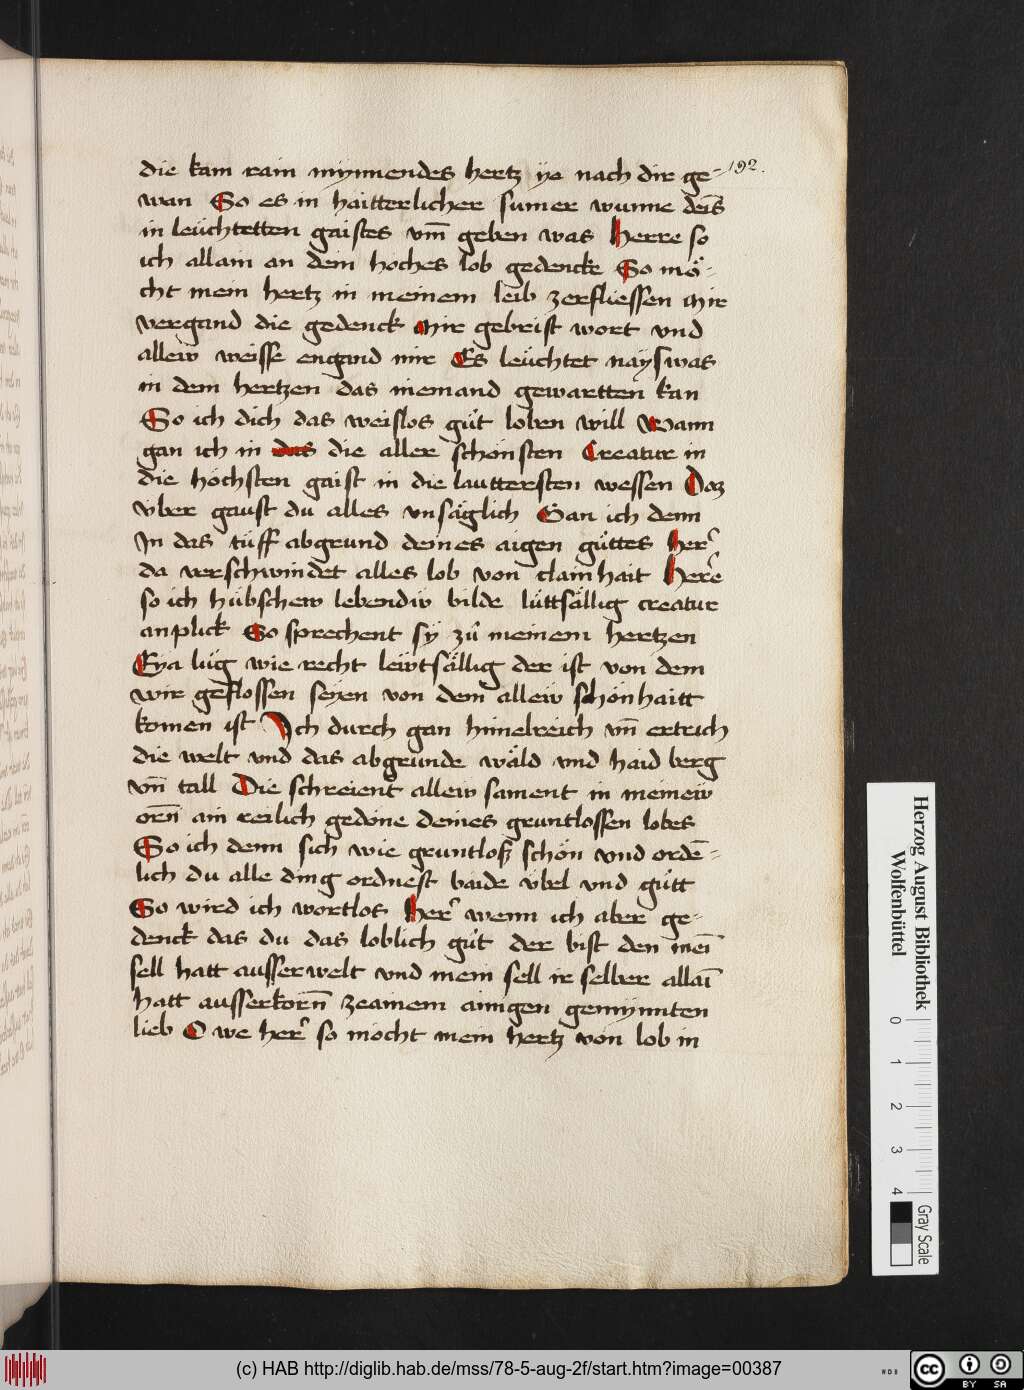 die kam rain mynnendes hertz ye nach dir ge- 192.
wan So es in haitterlicher sumer wunne deīs
in leüchtetten gaistes vm̄ geben was Herre so
ich allain an dein hoches lob gedencke So mö-
cht mein hertz in meinem leib zerfliessen mir
vergand die gedenck mir gebrist wort vnd
allew weisse engand mir Es leüchtet nayswas
in dem hertzen das niemand gewartten kan
So ich dich das weislos gůt loben will Wann
gan ich in das die aller schönsten Creatur in
die höchsten gaist in die lauttersten wessen Daz
über gaust du alles vnsäglich Gan ich denn
In das tüff abgrund deines aigen gůttes Her̄
da verschwindet alles lob von clainhait Herre
so ich hübschew lebendiw bilde lüttsällig creatur
anplick So sprechent sy zů meinem hertzen
Eya lůg wie recht lewtsällig der ist von dem
wir geflossen seyen von dem allew schönhaitt
komen ist Ich durch gan himelreich vn̄ ertrich
die welt vnd das abgrunde wäld vnd haid berg
vn̄ tall Die schreient allew sament in meinew
orn̄ ain reilich gedöne deines gruntlossen lobes
So ich denn sich wie gruntloß schön vnd ordē-
lich du alle ding ordnest baide übel vnd gůtt
So wird ich wortlos Her̄ wenn ich aber ge-
denck das du das loblich gůt der bist den meī
sell hatt ausserwelt vnd mein sell ir selber allaī
hatt ausserkorn̄ zeainem ainigen gemynnten
lieb O we her̄ so möcht mein hertz von lob in
Herzog August Bibliothek
Wolfenbüttel
0 1 2 3 4
Gray Scale
(c) HAB http://diglib.hab.de/mss/78-5-aug-2f/start.htm?image=00387
WDB
cc BY SA